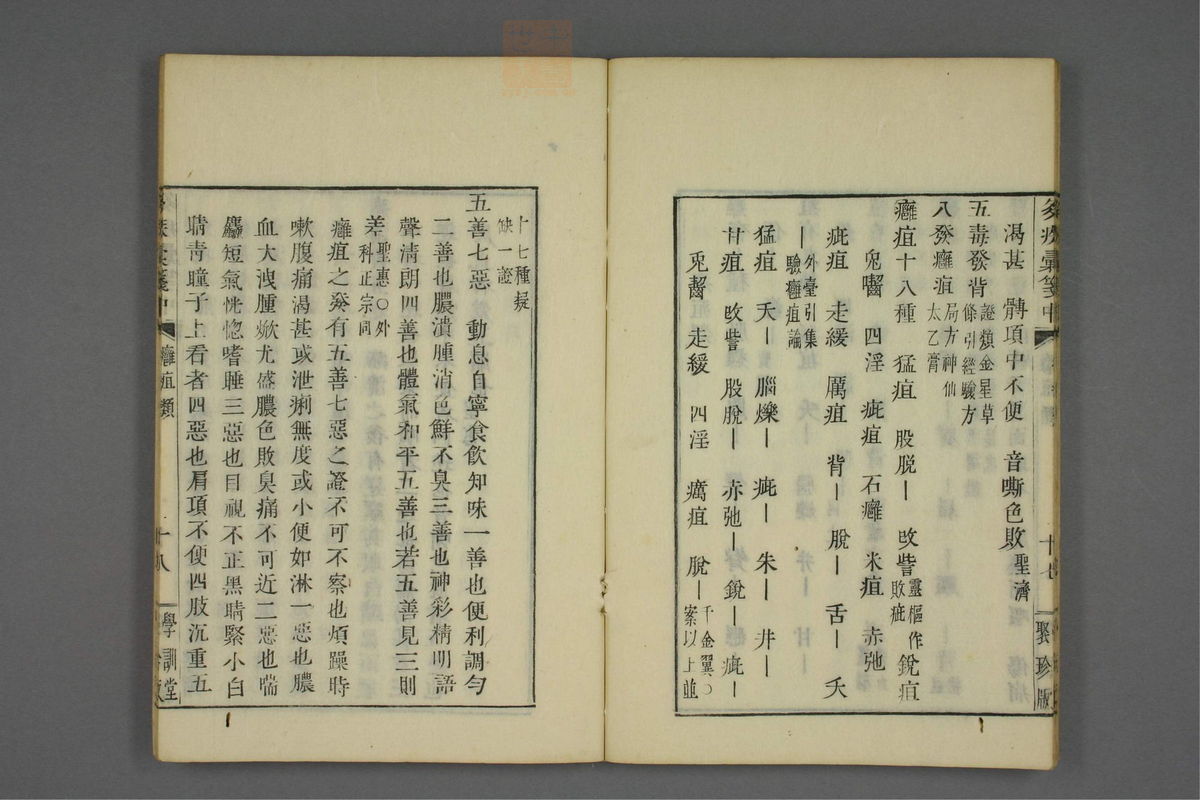 渴甚　髆項中不便　音嘶色敗聖濟
五毒發背證類金星草條引經驗方
八發癰疽局方神仙太乙膏
癰疽十八種　猛疽　股脱—　𢻹訾靈樞作敗疵　銳疽
兎嚙　四淫　疵疽　石癰　米疽　赤弛
疵疽　走緩　厲疽　背—　脱—　舌—　夭
—外臺引集驗癰疽論
猛疽　夭—　腦爍—　疵—　朱—　井—
甘疽　𢻹訾　股脱—　赤弛—　銳—　疵—
兎齧　走緩　四淫　癘疽　脱—千金翼○案以上並
十七種疑缺一證
五善七惡　動息自寧食飲知味一善也便利調勻
二善也膿潰腫消色鮮不臭三善也神彩精明語
聲清朗四善也體氣和平五善也若五善見三則
差聖惠○外科正宗同
癰疽之發有五善七惡之證不可不察也煩躁時
嗽腹痛渴甚或泄痢無度或小便如淋一惡也膿
血大洩腫焮尤盛膿色敗臭痛不可近二惡也喘
麤短氣恍惚嗜睡三惡也目視不正黑睛緊小白
睛青瞳子上看者四惡也肩項不便四肢沉重五
癰疽類
十七
聚珍版
十八
學訓堂